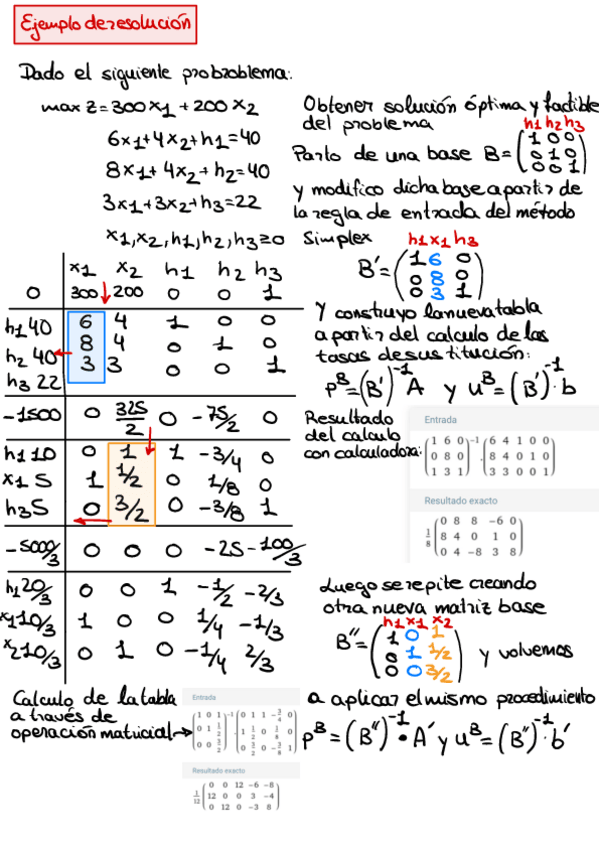 Ejemplo de resolución
Dado el siguiente probroblema:
max z = 300x1 + 200x2
6x1+4x2+h1=40
8x1+4x2+h2=40
3x1+3x2+h3=22
x1,x2,h1,h2,h3≥0
Obtener solución óptima y factible
del problema
h1 h2 h3
Parto de una base B = (1 0 0
0 1 0
0 0 1)
y modifico dicha base a partir de
la regla de entrada del método
Simplex
h1 x1 h3
B' = (1 6 0
0 8 0
0 3 1)
Y construyo la nueva tabla
a partir del calculo de las
tasas de sustitución:
P^B = (B')^-1 A y u^B = (B')^-1 · b
x1 x2 h1 h2 h3
0 300 200 0 0 1
h1 40 6 4 1 0 0
h2 40 8 4 0 1 0
h3 22 3 3 0 0 1
-1500 0 325/2 0 -75/2 0
h1 10 0 1 1 -3/4 0
x1 5 1 1/2 0 1/8 0
h3 5 0 3/2 0 -3/8 1
-5000/3 0 0 0 -25 -100/3
h1 20/3 0 0 1 -1/2 -2/3
x1 10/3 1 0 0 1/4 -1/3
x2 10/3 0 1 0 -1/4 2/3
Resultado
del calculo
con calculadora:
Entrada
(1 6 0
0 8 0
1 3 1)^-1 · (6 4 1 0 0
8 4 0 1 0
3 3 0 0 1)
Resultado exacto
1/8 (0 8 8 -6 0
8 4 0 1 0
0 4 -8 3 8)
Luego se repite creando
otra nueva matriz base
h1 x1 x2
B'' = (1 0 1
0 1 1/2
0 0 3/2) y volvemos
a aplicar el mismo procedimiento
P^B = (B'')^-1 · A' y u^B = (B'')^-1 · b'
Calculo de la tabla
a través de
operación matricial→
Entrada
(1 0 1
0 1 1/2
0 0 3/2)^-1 · (0 1 1 -3/4 0
1 1/2 0 1/8 0
0 3/2 0 -3/8 1)
Resultado exacto
1/12 (0 0 12 -6 -8
12 0 0 3 -4
0 12 0 -3 8)